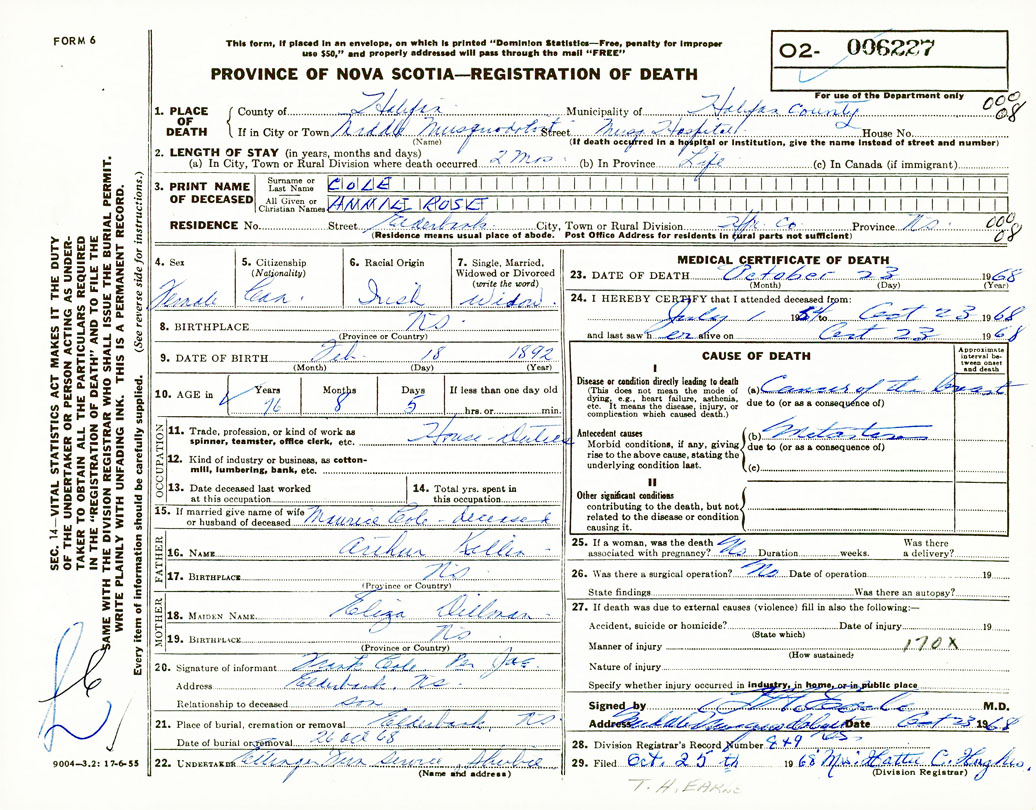 FORM 6
This form, if placed in an envelope, on which is printed "Dominion Statistics—Free, penalty for improper
use $50," and properly addressed will pass through the mail "FREE"
PROVINCE OF NOVA SCOTIA—REGISTRATION OF DEATH
O2- 006227
For use of the Department only
000
08
1. PLACE OF DEATH
County of Halifax Municipality of Halifax County
If in City or Town Middle Musquodoboit Street Musq Hospital House No.
(Name) (If death occurred in a hospital or institution, give the name instead of street and number)
2. LENGTH OF STAY (in years, months and days)
(a) In City, Town or Rural Division where death occurred 2 Mos. (b) In Province Life (c) In Canada (if immigrant)
3. PRINT NAME OF DECEASED
Surname or Last Name COLE
All Given or Christian Names ANNIE ROSE
RESIDENCE No. Street Elderbank City, Town or Rural Division Hfx Co Province NS
(Residence means usual place of abode. Post Office Address for residents in rural parts not sufficient)
000
08
4. Sex
Female
5. Citizenship
(Nationality)
Can.
6. Racial Origin
Irish
7. Single, Married,
Widowed or Divorced
(write the word)
Widow.
8. BIRTHPLACE NS.
(Province or Country)
9. DATE OF BIRTH Feb. 18 1892
(Month) (Day) (Year)
10. AGE in
Years Months Days If less than one day old
76 8 5 hrs. or min.
OCCUPATION
11. Trade, profession, or kind of work as
spinner, teamster, office clerk, etc. House-Duties
12. Kind of industry or business, as cotton-
mill, lumbering, bank, etc.
13. Date deceased last worked
at this occupation
14. Total yrs. spent in
this occupation
15. If married give name of wife
or husband of deceased Maurice Cole - deceased
FATHER
16. NAME Arthur
17. BIRTHPLACE NS
(Province or Country)
MOTHER
18. MAIDEN NAME Eliza Dillman
19. BIRTHPLACE NS
(Province or Country)
20. Signature of informant Cole Per
Address Elderbank, NS.
Relationship to deceased son
21. Place of burial, cremation or removal Elderbank NS
Date of burial or removal 26 Oct 68
22. UNDERTAKER Ettinger Service
(Name and address)
MEDICAL CERTIFICATE OF DEATH
23. DATE OF DEATH October 23 1968
(Month) (Day) (Year)
24. I HEREBY CERTIFY that I attended deceased from:
July 1 1954 to Oct 23 1968
and last saw her alive on Oct 23 1968
CAUSE OF DEATH
Approximate
interval be-
tween onset
and death
I
Disease or condition directly leading to death
(This does not mean the mode of
dying, e.g., heart failure, asthenia,
etc. It means the disease, injury, or
complication which caused death.)
(a) Cancer of the breast
due to (or as a consequence of)
Antecedent causes
Morbid conditions, if any, giving
rise to the above cause, stating the
underlying condition last.
(b) Metastases
due to (or as a consequence of)
(c)
II
Other significant conditions
contributing to the death, but not
related to the disease or condition
causing it.
25. If a woman, was the death
associated with pregnancy? No Duration weeks. Was there
a delivery?
26. Was there a surgical operation? No Date of operation 19
State findings Was there an autopsy?
27. If death was due to external causes (violence) fill in also the following:—
Accident, suicide or homicide? Date of injury 19
(State which)
Manner of injury 170X
(How sustained)
Nature of injury
Specify whether injury occurred in industry, in home, or in public place
Signed by M.D.
Address Middle Musquodoboit Date Oct 23 1968
28. Division Registrar's Record Number
29. Filed Oct. 25th 1968 Mrs. Hattie C. Hughes.
(Division Registrar)
SEC. 14—VITAL STATISTICS ACT MAKES IT THE DUTY
OF THE UNDERTAKER OR PERSON ACTING AS UNDER-
TAKER TO OBTAIN ALL THE PARTICULARS REQUIRED
IN THE "REGISTRATION OF DEATH" AND TO FILE THE
SAME WITH THE DIVISION REGISTRAR WHO SHALL ISSUE THE BURIAL PERMIT.
WRITE PLAINLY WITH UNFADING INK. THIS IS A PERMANENT RECORD.
Every item of information should be carefully supplied. (See reverse side for instructions.)
9004—3.2: 17-6-55
T. H. EARLE